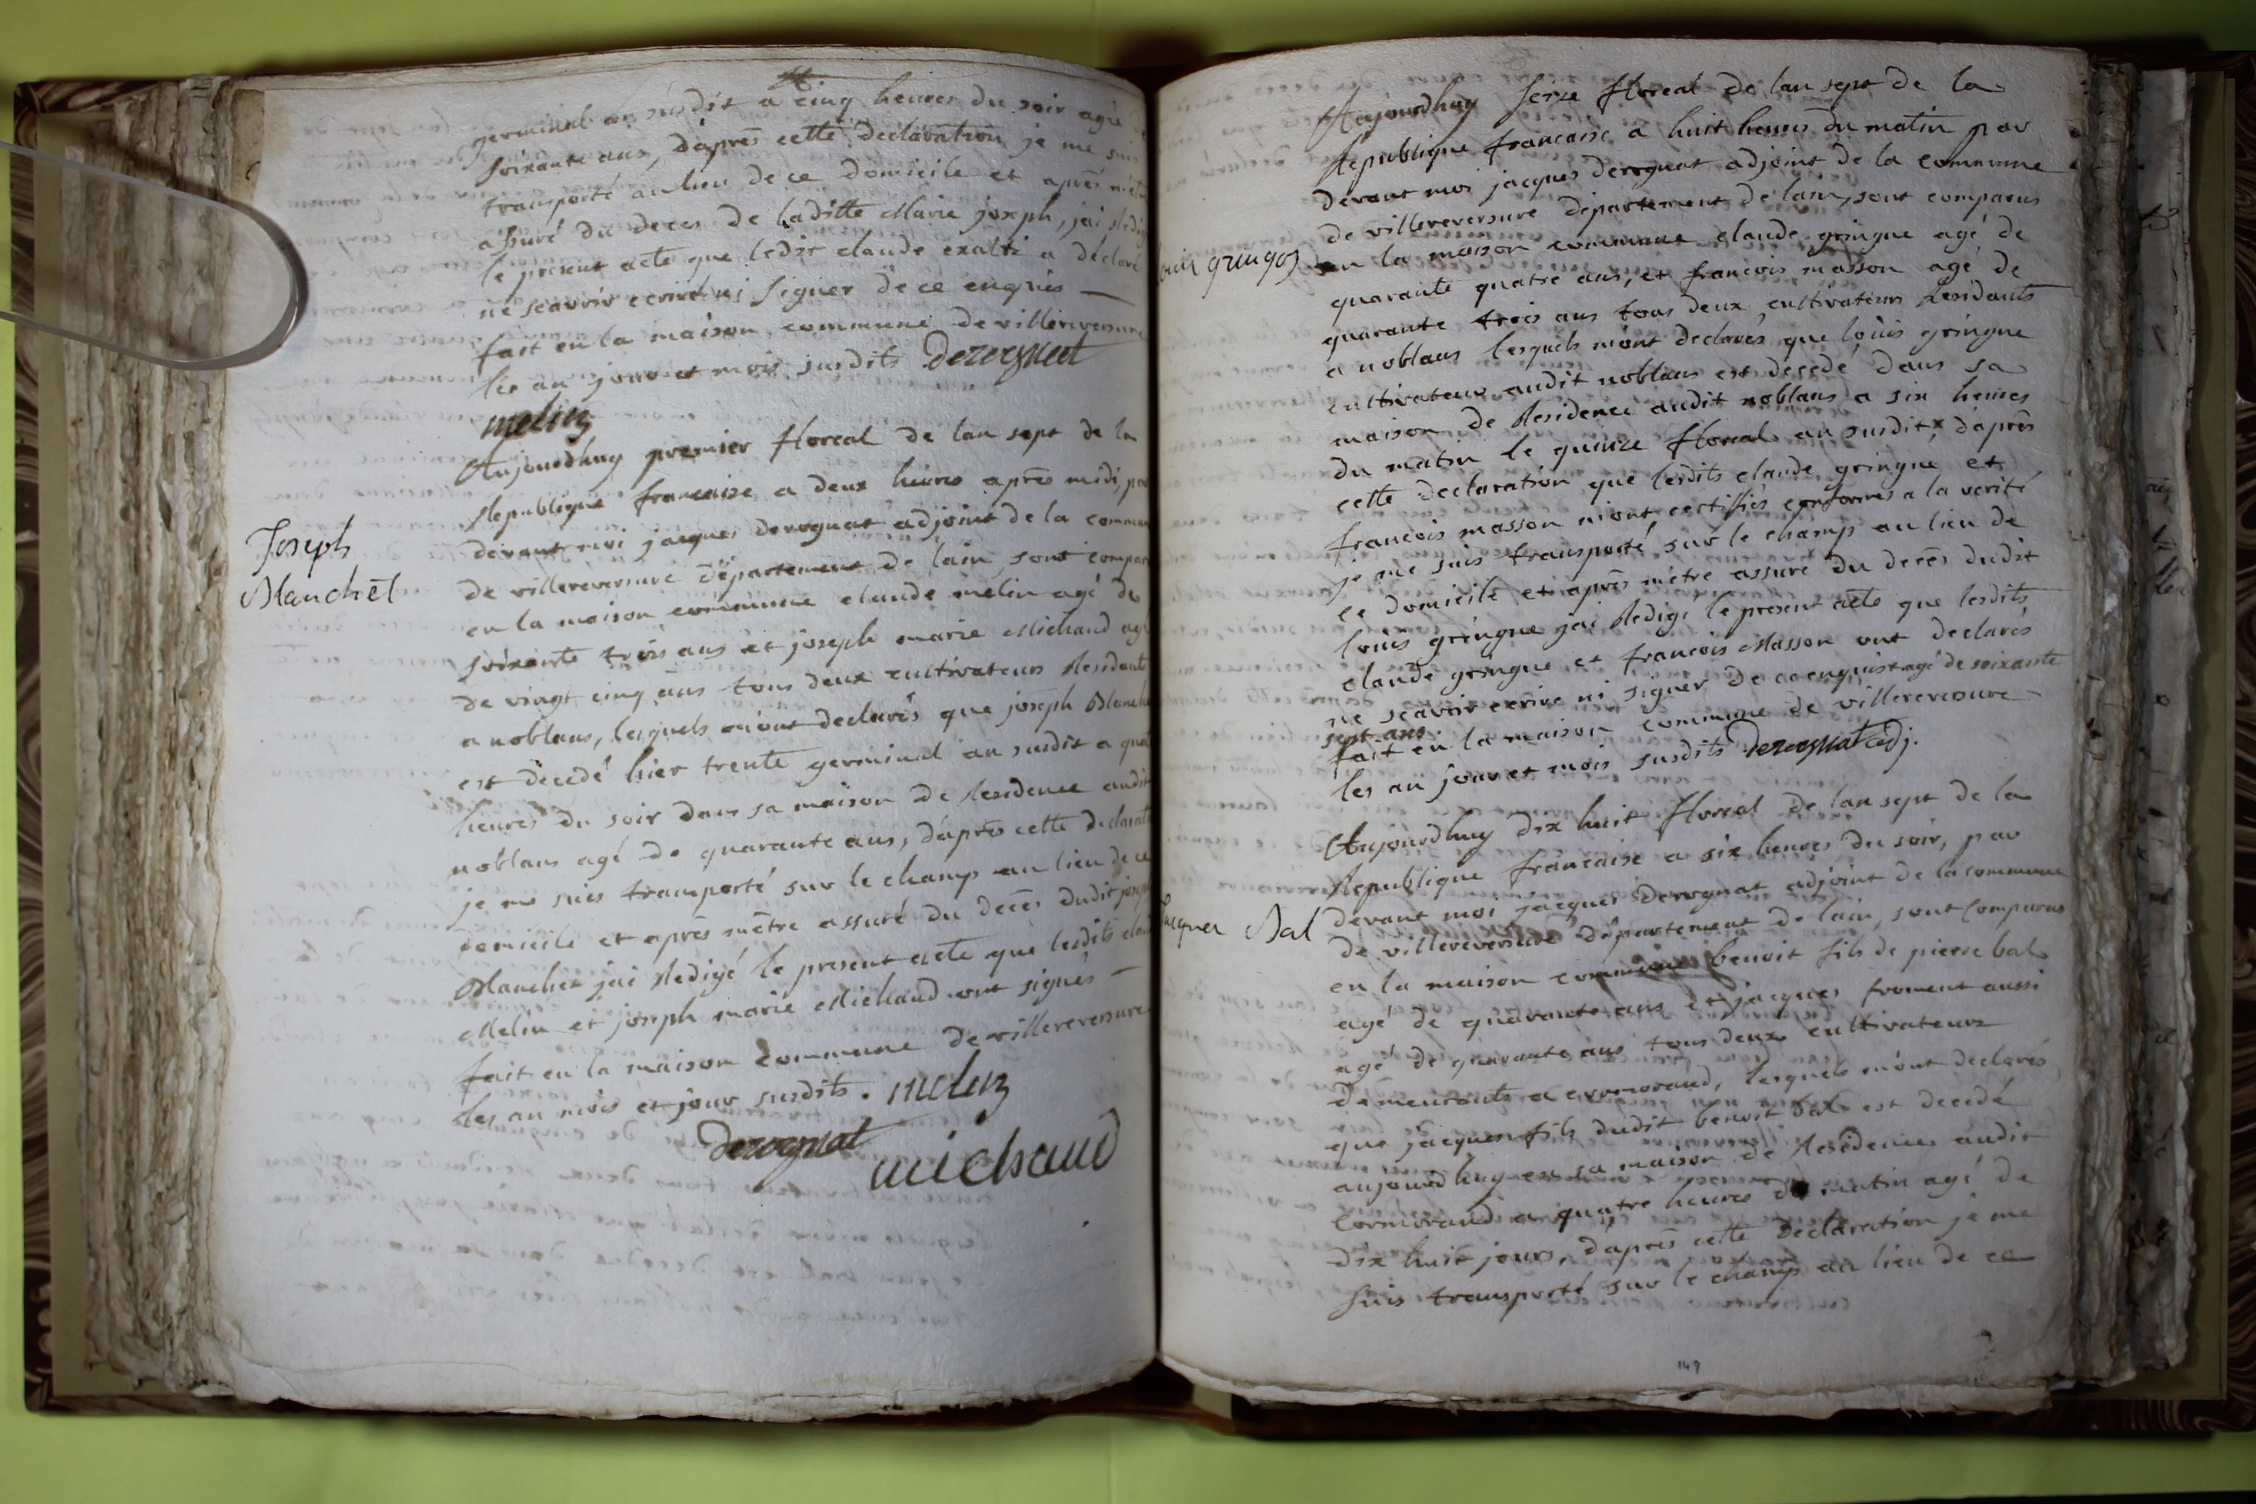 germinal an susdit a cinq heures du soir agée
soixante ans, d'aprés cette declaration je me suis
transporté au lieu de ce domicile et aprés m'etre
assuré du deces de laditte Marie joseph, jai Redigé
le present acte que ledit claude exalti a déclaré
ne scavoir ecrire ni signer de ce enquis —
fait en la maison commune de villereversure
les an jour et mois susdits derognat
melin
Joseph
Blanchet
Aujourdhuy premier floreal de lan sept de la
Republique francaise a deux heures aprés midi, par
devant moi jacques derognat adjoint de la commune
de villereversure département de lain, sont comparus
en la maison commune claude melin agé de
soixante trois ans et joseph marie Michaud agé
de vingt cinq ans tous deux cultivateurs Residants
a noblans, lesquels m'ont declarés que joseph Blanchet
est décedé hier trente germinal an susdit a quatre
heures du soir dans sa maison de Residence audit
noblans agé de quarante ans, d'aprés cette declaration
je me suis transporté sur le champ au lieu de ce
domicile et aprés m'etre assuré du decés dudit joseph
Blanchet jai Redigé le present acte que lesdits claude
Melin et joseph marie Michaud ont signés —
fait en la maison commune de villereversure
les an mois et jour susdits. melin
derognat michaud
Louis gringoz
Aujourdhuy seize floreal de lan sept de la
Republique francaise a huit heures du matin par
devant moi jacques derognat adjoint de la commune
de villereversure département de lain, sont comparus
en la maison commune claude gringue agé de
quarante quatre ans, et francois masson agé de
quarante trois ans tous deux cultivateurs Residants
a noblans lesquels m'ont declarés que louis gringue
cultivateur audit noblans est décedé dans sa
maison de Residence audit noblans a six heures
du matin le quinze floreal an susdit x, d'aprés
cette declaration que lesdits claude gringue et
francois masson m'ont certifiés conformes a la verité
je me suis transporté sur le champ au lieu de
ce domicile et aprés m'etre assuré du decés dudit
louis gringue jai Redigé le present acte que lesdits
claude gringue et francois Masson ont declarés
ne scavoir ecrire ni signer de ce enquis x agé de soixante
sept ans
fait en la maison commune de villereversure
les an jour et mois susdits derognat adj.
Jacques Bal
Aujourdhuy dix huit floreal de lan sept de la
Republique francaise a six heures du soir, par
devant moi jacques derognat adjoint de la commune
de villereversure département de lain, sont comparus
en la maison commune benoit fils de pierre bal
agé de quarante ans et jacques froment aussi
agé de quarante ans tous deux cultivateurs
demeurants a cormorand, lesquels m'ont declarés
que jacques fils dudit benoit bal est decedé
aujourdhuy en sa maison de Residence audit
Cormorand a quatre heures du matin agé de
dix huit jours, d'aprés cette declaration je me
suis transporté sur le champ au lieu de ce
149